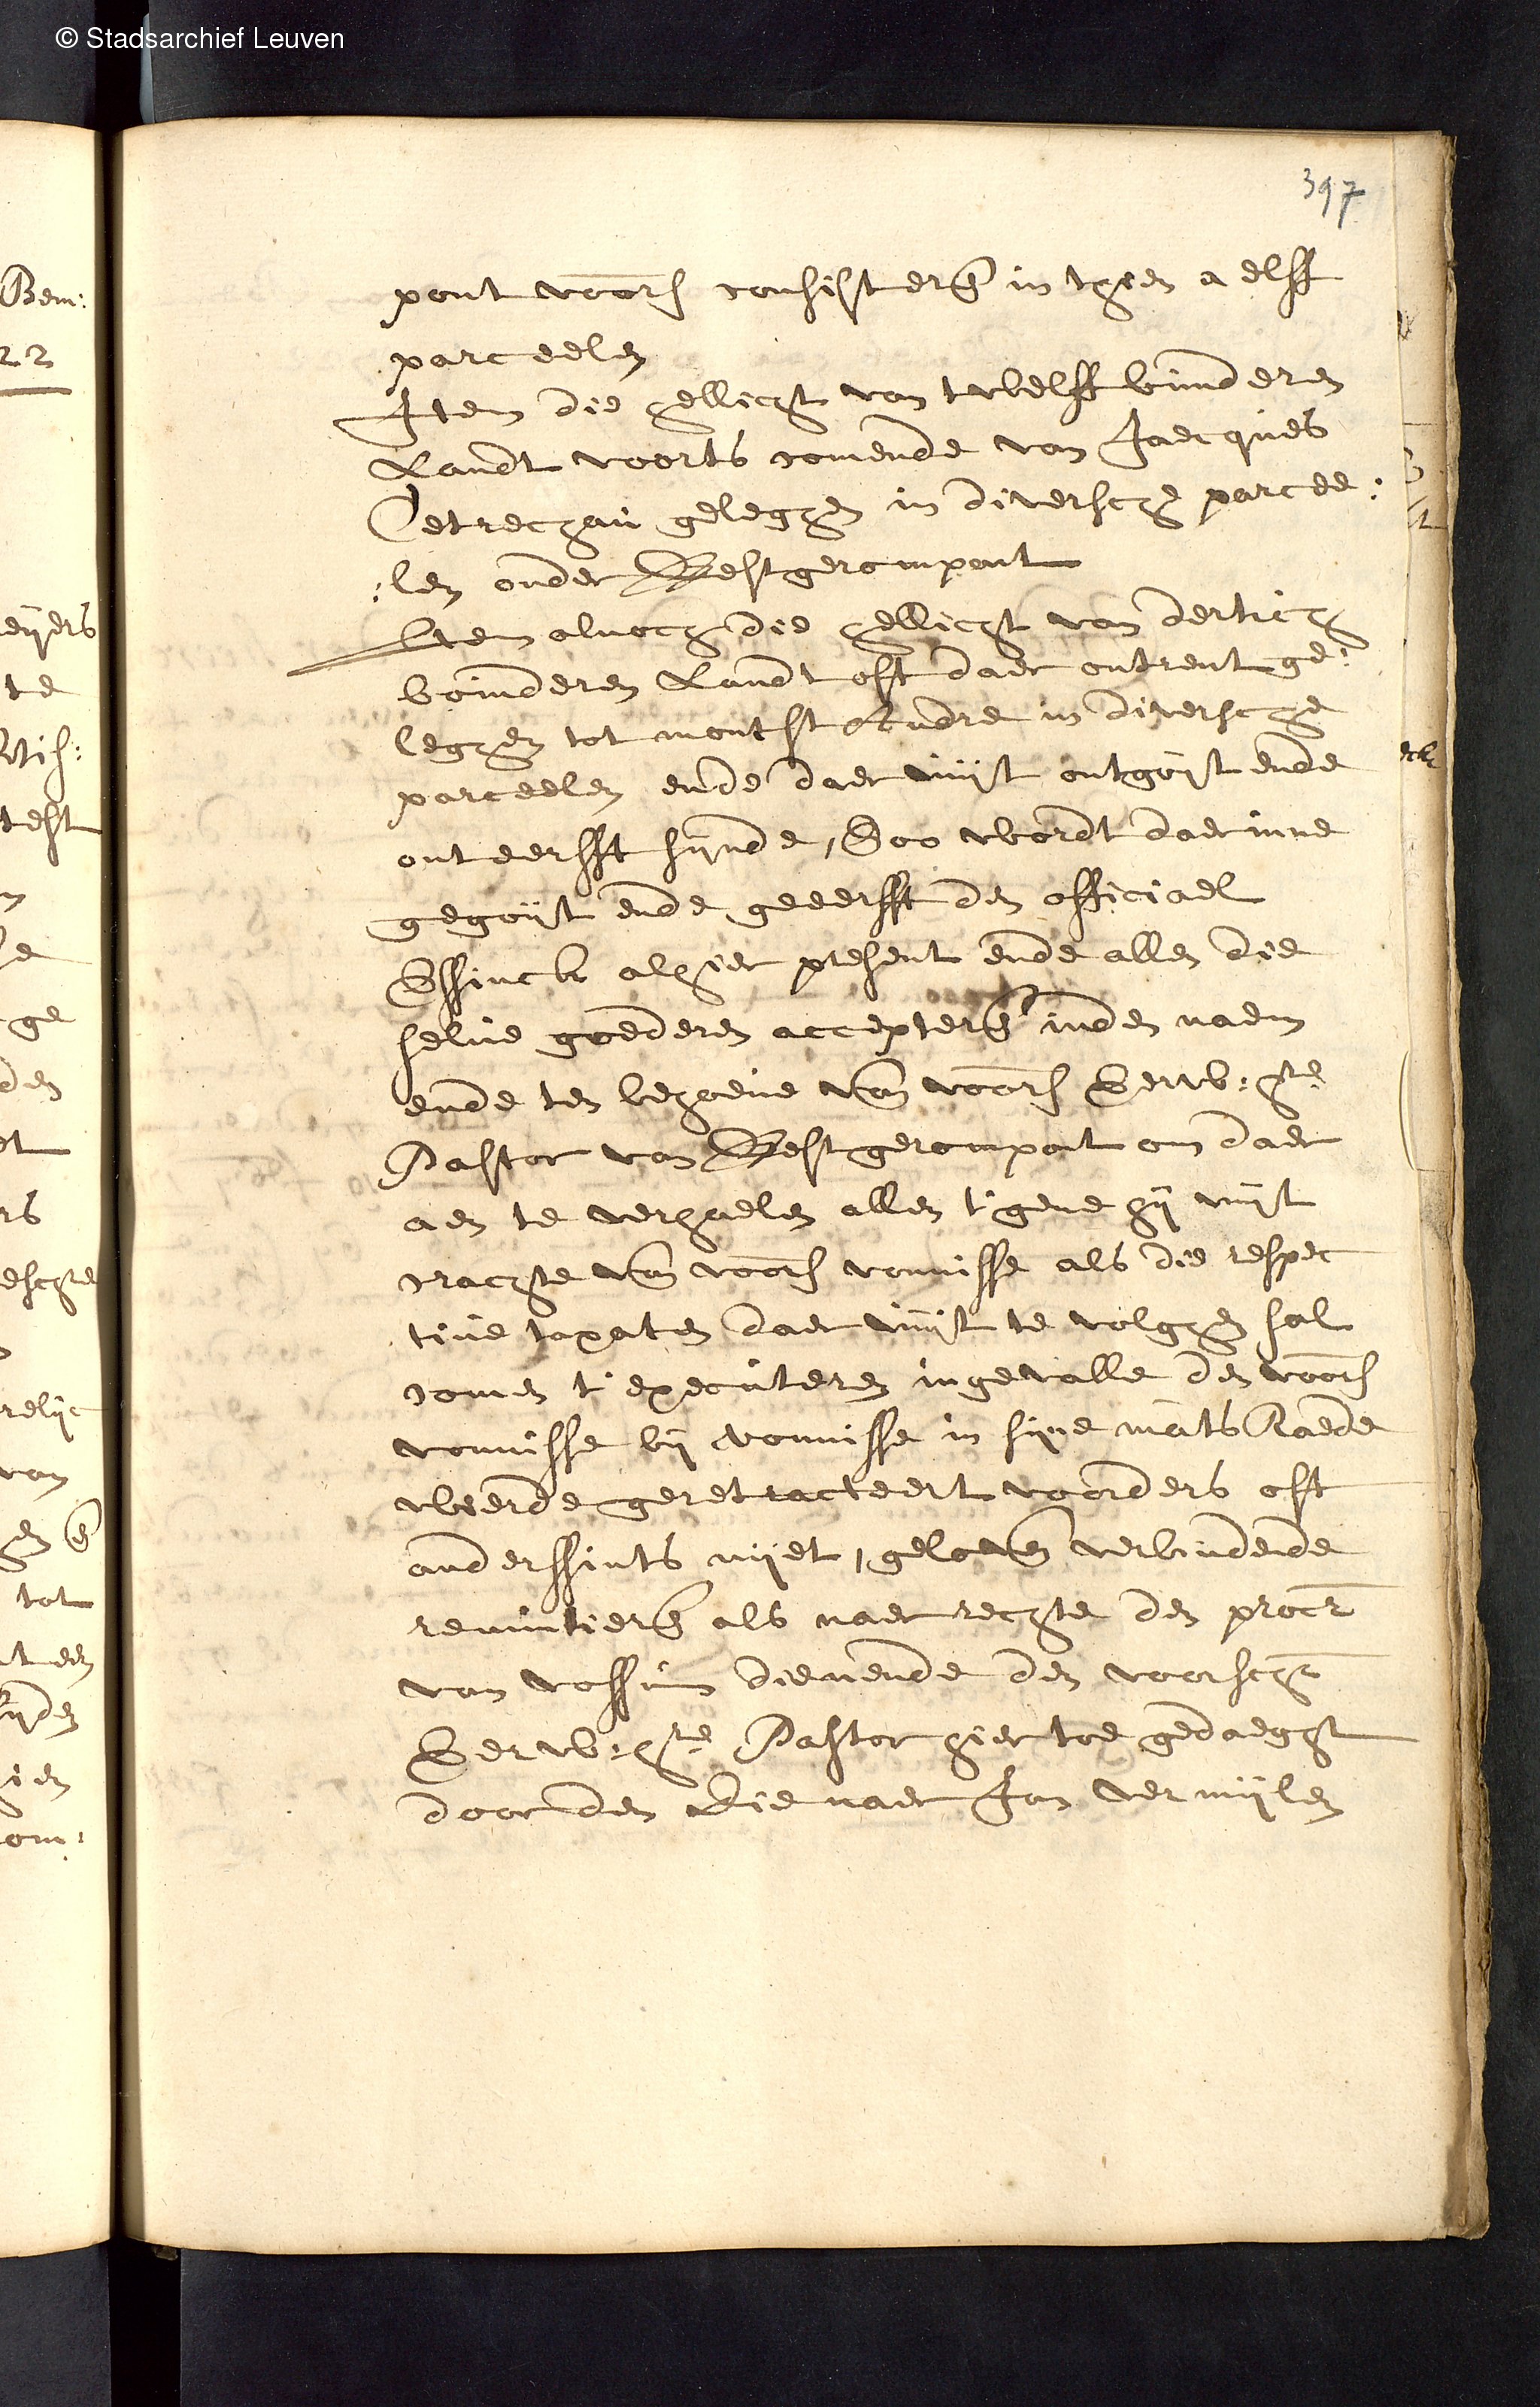 © Stadsarchief Leuven
397
pont voors consisterende in thien a elff
parceelen
Item die hellicht van twelff bunderen
Landt voorts comende van Jacques
Petrechau geleghen in diversche parcee:
:len onder Bestgerompont
Item alnoch die hellicht van dertich
boinderen Landt oft daer ontrent ge:
leghen tot mont St Andre in diversche
parceelen ende daer vuijt ontgoijt ende
onteerfft sijnde, Soo wordt daer inne
gegoijt ende geeerfft den officiael
Essinck alhier present ende allen die
selve goederen accepterende inden naem
ende ten behoeve van voors Eerw: hre
Pastor van Bestgerompont om daer
aen te verhaelen allen t'gene hij vuijt
crachte van voors vonnisse als die respec
tive taxaten daer vuijt te volghen sal
comen t'executeren ingevalle den voors
vonnisse bij vonnisse in sijne ma:ts Raede
weerde geretracteert voorders oft
anderssints nijet, geloven verbindende
renuntierende als naer rechte den procr
van vossum dienende den voorschr
Eerw: hre Pastor hier toe gedaeght
door den Dienaer Jan vermijlen